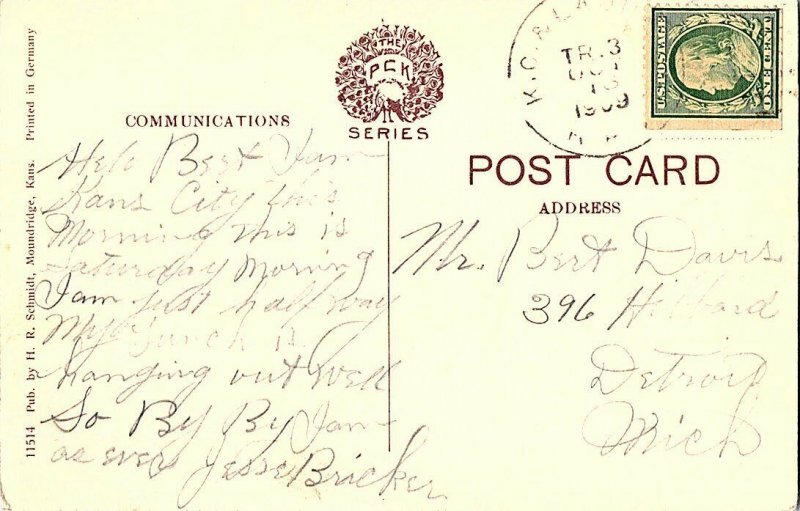 11514 Pub. by H. R. Schmidt, Moundridge, Kans. Printed in Germany
COMMUNICATIONS
THE
PCK
SERIES
Helo Bert I am
Kans City this
Morning this is
Saturday Morning
I am just half way
My Lunch is
hanging out well
So By By I am
as ever Jesse Bricker
K.C. & LA
TR. 3
OCT
16
1909
U.S. POSTAGE
ONE CENT
POST CARD
ADDRESS
Mr. Bert Davis
396 Hibbard
Detroit
Mich